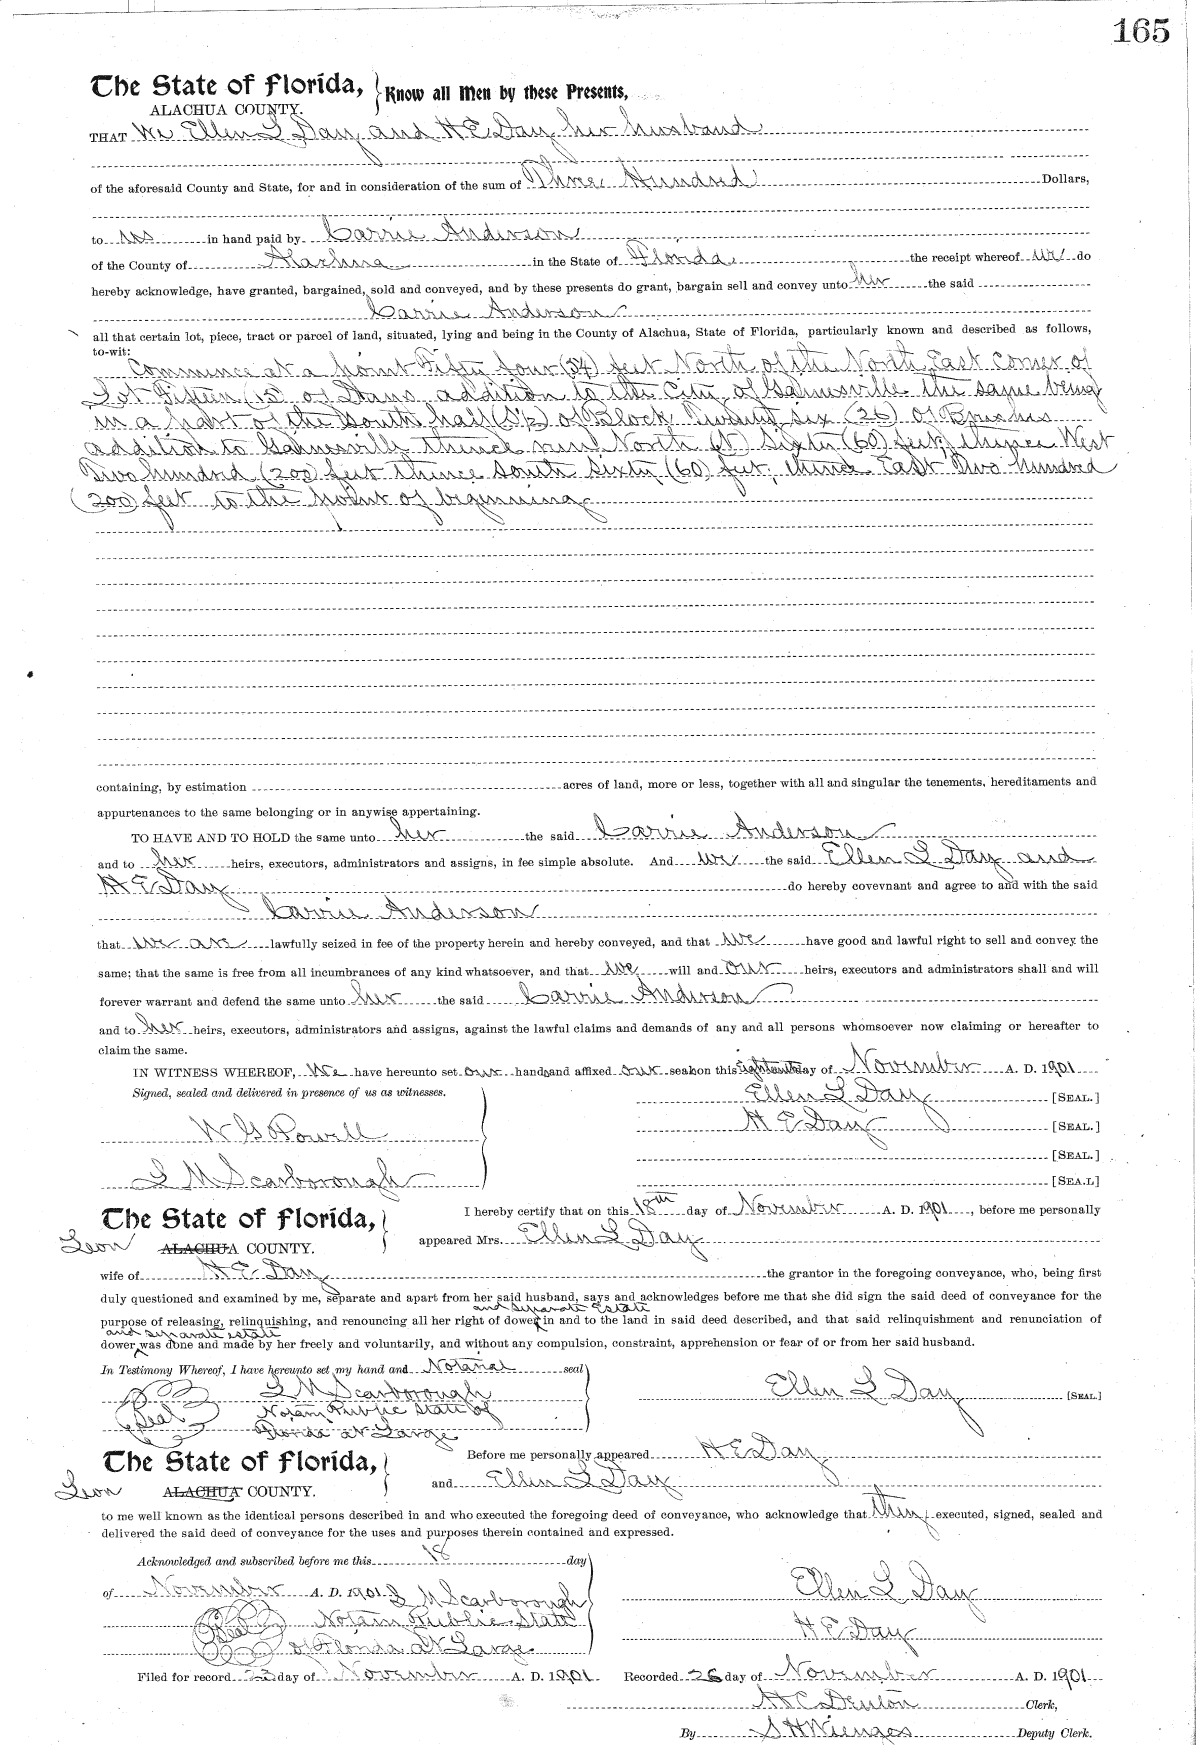 165
The State of Florida, } Know all Men by these Presents,
ALACHUA COUNTY.
THAT We Ellen L Day and H E Day her husband
of the aforesaid County and State, for and in consideration of the sum of Three Hundred Dollars,
to us in hand paid by Carrie Anderson
of the County of Alachua in the State of Florida the receipt whereof we do
hereby acknowledge, have granted, bargained, sold and conveyed, and by these presents do grant, bargain sell and convey unto her the said
Carrie Anderson
all that certain lot, piece, tract or parcel of land, situated, lying and being in the County of Alachua, State of Florida, particularly known and described as follows,
to-wit:
Commence at a point Fifty four (54) feet North of the North East corner of
Lot Fifteen (15) of addition to the City of Gainesville the same being
in a part of the South half (S½) of Block Twenty six (26) of Brushs
addition to Gainesville thence run North (N) Sixty (60) feet, thence West
Two hundred (200) feet thence South Sixty (60) feet, thence East Two hundred
(200) feet to the point of beginning
containing, by estimation acres of land, more or less, together with all and singular the tenements, hereditaments and
appurtenances to the same belonging or in anywise appertaining.
TO HAVE AND TO HOLD the same unto her the said Carrie Anderson
and to her heirs, executors, administrators and assigns, in fee simple absolute. And we the said Ellen L Day and
H E Day do hereby covevnant and agree to and with the said
Carrie Anderson
that we are lawfully seized in fee of the property herein and hereby conveyed, and that we have good and lawful right to sell and convey the
same; that the same is free from all incumbrances of any kind whatsoever, and that we will and our heirs, executors and administrators shall and will
forever warrant and defend the same unto her the said Carrie Anderson
and to her heirs, executors, administrators and assigns, against the lawful claims and demands of any and all persons whomsoever now claiming or hereafter to
claim the same.
IN WITNESS WHEREOF, We have hereunto set our hands and affixed our seals on this eighteenth day of November A. D. 1901
Signed, sealed and delivered in presence of us as witnesses.
Ellen L Day [SEAL.]
H E Day [SEAL.]
W G Powell
[SEAL.]
L M Scarborough [SEA.L]
The State of Florida, } I hereby certify that on this 18th day of November A. D. 1901, before me personally
Leon ALACHUA COUNTY. appeared Mrs. Ellen L Day
wife of H E Day the grantor in the foregoing conveyance, who, being first
duly questioned and examined by me, separate and apart from her said husband, says and acknowledges before me that she did sign the said deed of conveyance for the
and separate Estate
purpose of releasing, relinquishing, and renouncing all her right of dower in and to the land in said deed described, and that said relinquishment and renunciation of
and separate estate
dower was done and made by her freely and voluntarily, and without any compulsion, constraint, apprehension or fear of or from her said husband.
In Testimony Whereof, I have hereunto set my hand and Notarial seal
L M Scarborough
Ellen L Day [SEAL.]
Seal Notary Public State of
Florida at Large
The State of Florida, } Before me personally appeared H E Day
Leon ALACHUA COUNTY. and Ellen L Day
to me well known as the identical persons described in and who executed the foregoing deed of conveyance, who acknowledge that they executed, signed, sealed and
delivered the said deed of conveyance for the uses and purposes therein contained and expressed.
Acknowledged and subscribed before me this 18 day
of November A. D. 1901 L M Scarborough
Ellen L Day
Seal Notary Public State
of Florida at Large
H E Day
Filed for record 23 day of November A. D. 1901 Recorded 26 day of November A. D. 1901
H C Denton Clerk,
By S H Wienges Deputy Clerk.